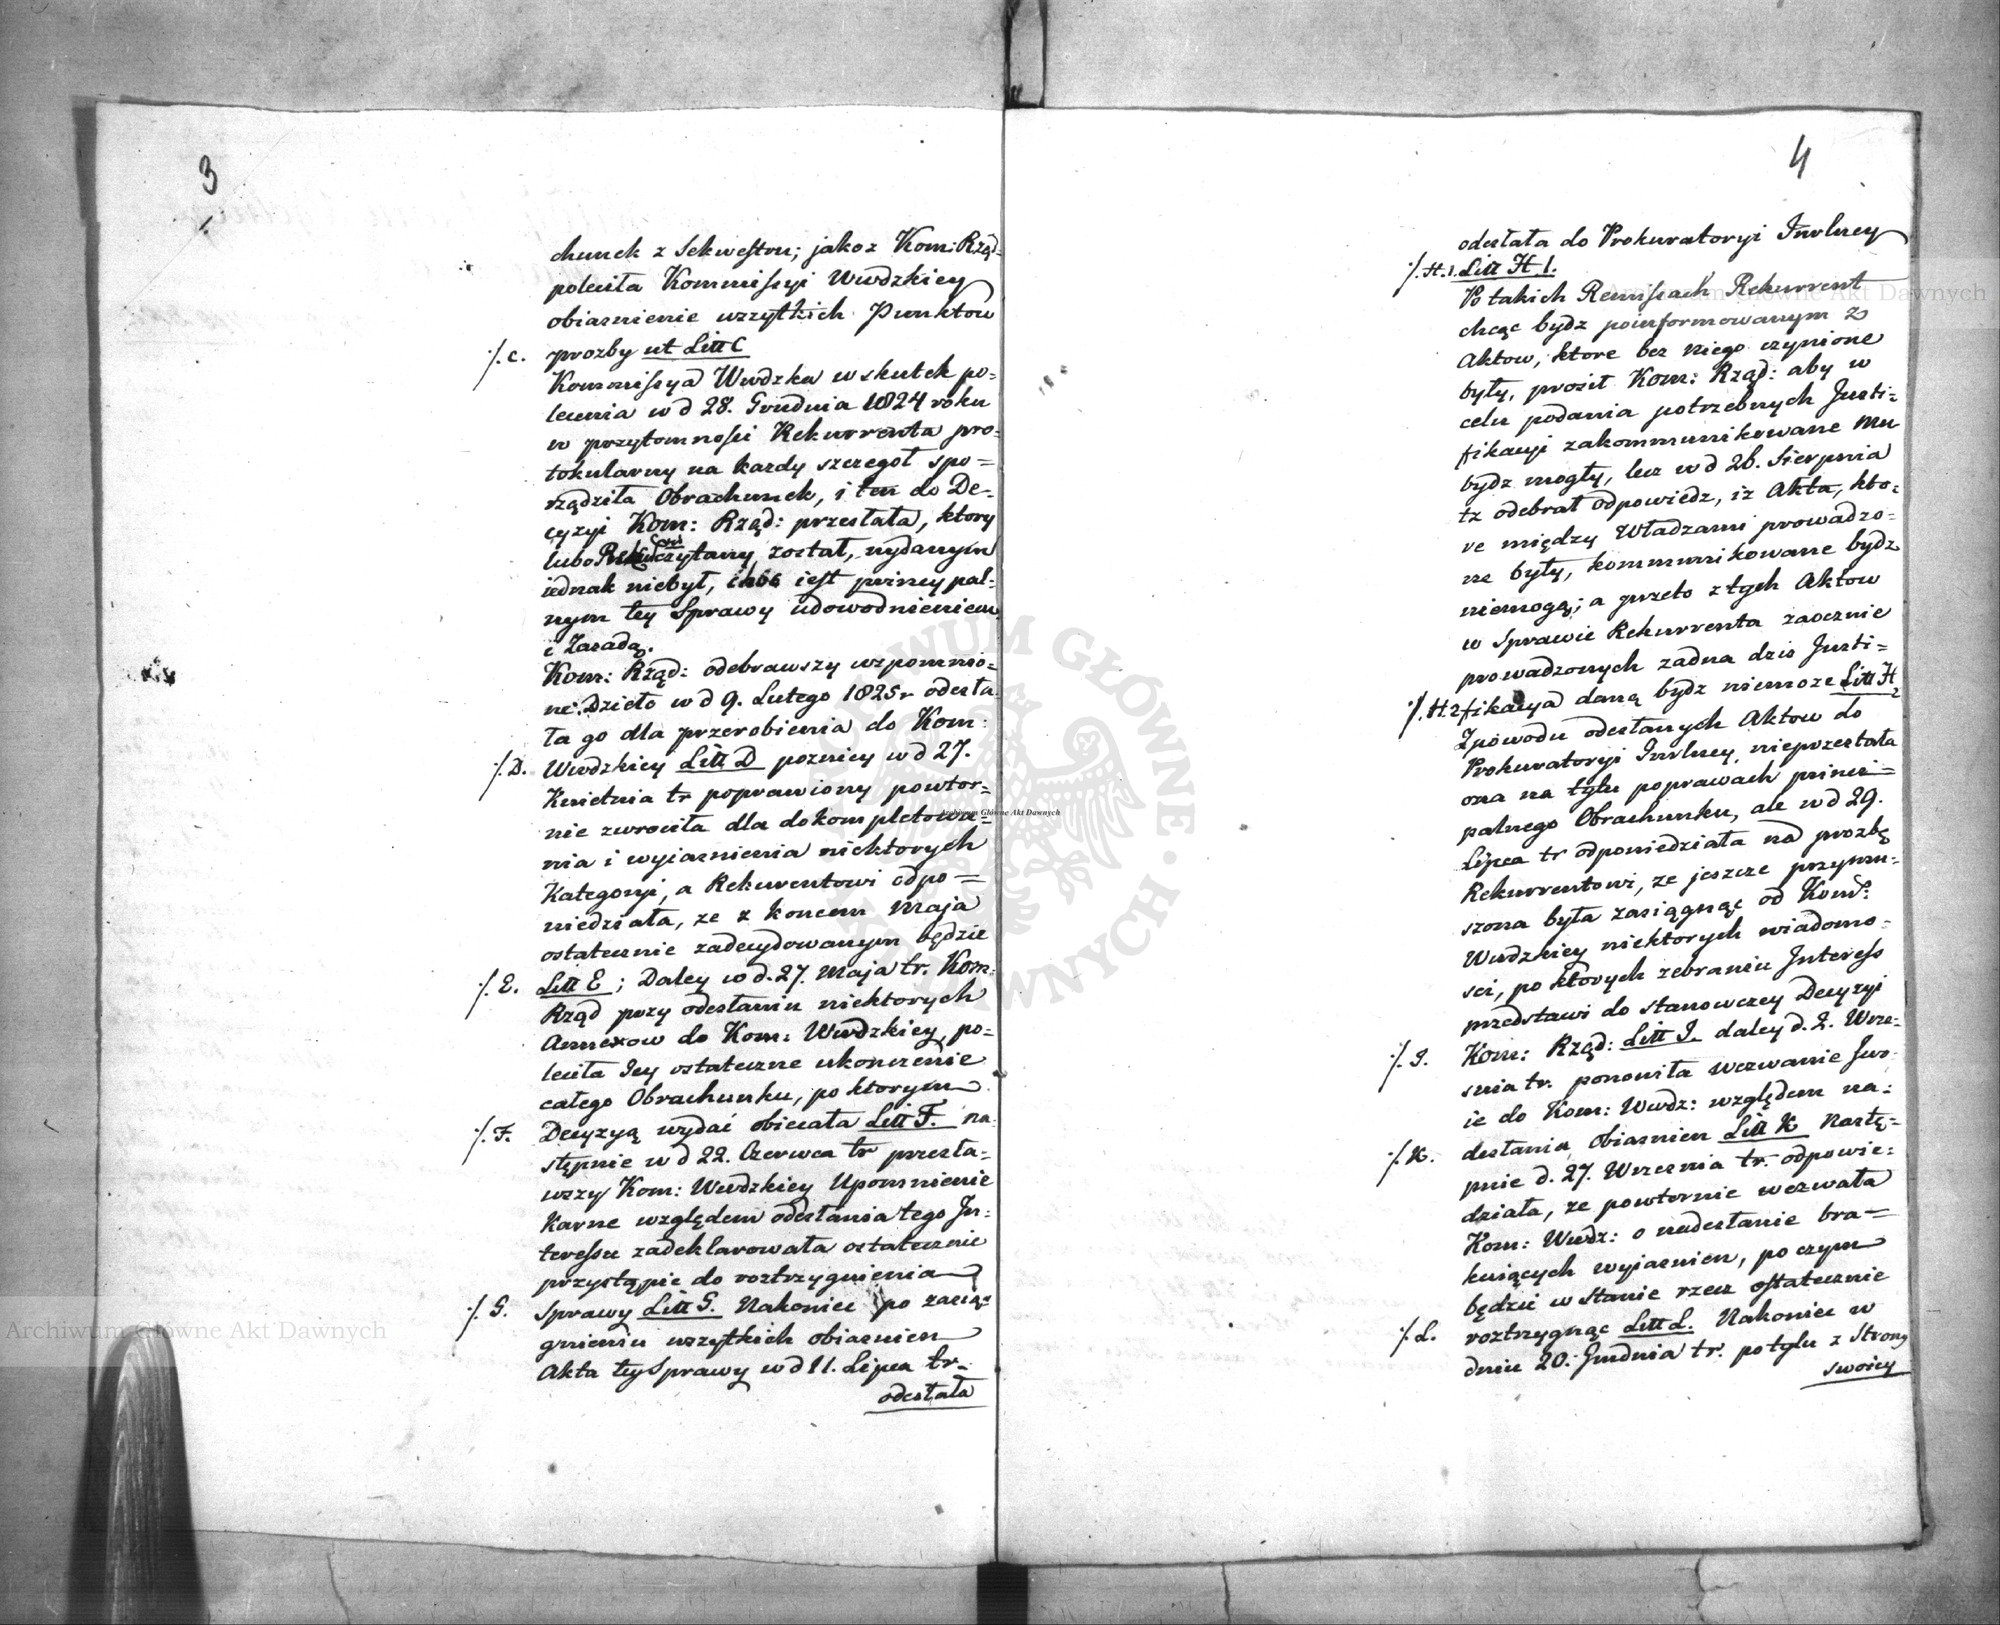 3
chunek z Sekwestru; jakoz Kom: Rząd=
poleciła Kommissyi Wwdzkiey
obiasnienie wszytkich Punktow
·/. C. prozby ut Litt C
Kommissya Wwdzka w skutek po=
lecenia w d 28. Grudnia 1824 roku
w przytomnosci Rekurrenta pro=
tokularny na kazdy szczegoł spo=
rządziła Obrachunek, i ten do De=
cyzyi Kom: Rząd: przesłała, ktory
lubo czytany został, wydanym
iednak niebył, choć iest princypal=
nym tey Sprawy udowodnieniem
i Zasadą.
Kom: Rząd: odebrawszy wspomnio=
ne Dzieło w d 9. Lutego 1825 r odesła
ła go dla przerobienia do Kom:
·/. D. Wwdzkiey Litt D pozniey w d 27.
Kwietnia tr poprawiony powtor=
nie zwrociła dla dokompletowa=
nia i wyiasnienia niektorych
Kategoryi, a Rekurentowi odpo=
wiedziała, ze z koncem Maja
ostatecznie zadecydowanym będzie
·/. E. Litt E; Daley w d. 27. Maja tr. Kom:
Rząd przy odesłaniu niektorych
Annexow do Kom: Wwdzkiey, po=
leciła Jey ostateczne ukonczenie
całego Obrachunku, po ktorym
·/. F. Decyzyą wydać obiecała Litt F. na
stępnie w d 22. Czerwca tr przesła=
wszy Kom: Wwdzkiey Upomnienie
Karne względem odesłania tego In=
teressu zadeklarowała ostatecznie
przystąpic do roztrzygnienia
·/. G. Sprawy Litt G. Nakoniec po zasią=
gnieniu wszytkich obiasnien
Akta tey Sprawy w d 11. Lipca tr.
odesłała
4
odesłała do Prokuratoryi Jnrlney
·/. H.1. Litt H.1.
Po takich Remissach Rekurrent
chcąc bydz poinformowanym z
Aktow, ktore bez niego czynione
były, prosił Kom: Rząd: aby w
celu podania potrzebnych Justi=
fikacyi zakommunikowane Mu
bydz mogły, lecz w d 26. Sierpnia
tr odebrał odpowiedz, iz Akta, kto=
re między Władzami prowadzo=
ne były, kommunikowane bydz
niemogą; a przeto z tych Aktow
w Sprawie Rekurrenta zaocznie
prowadzonych zadna dzis Justi=
·/. H.2 fikacya daną bydz niemoze Litt H2
Zpowodu odesłanych Aktow do
Prokuratoryi Jnrlney, nieprzestała
ona na tylu poprawach princi=
palnego Obrachunku, ale w d 29.
Lipca tr odpowiedziała na prozbę
Rekurrentowi, ze jeszcze przymu=
szona była zasiągnąc od Kom:
Wwdzkiey niektorych wiadomo=
sci, po ktorych zebraniu Interess
przedstawi do stanowczey Decyzyi
·/. I. Kom: Rząd: Litt I. daley d. 2. Wrze=
snia tr. ponowiła wezwanie Swo=
ie do Kom: Wwdz: względem na=
·/. K. desłania obiasnien Litt K Nastę=
pnie d. 27. Wrzesnia tr. odpowie=
działa, ze powtornie wezwała
Kom: Wwdz: o nadesłanie bra=
kuiących wyiasnien, po czym
będzie w stanie rzecz ostatecznie
·/. L. roztrzygnąc Litt L. Nakoniec w
dniu 20. Grudnia tr. po tylu z Strony
swoiey
Archiwum Główne Akt Dawnych
Archiwum Główne Akt Dawnych
Archiwum Główne Akt Dawnych
ARCHIWUM GŁÓWNE AKT DAWNYCH